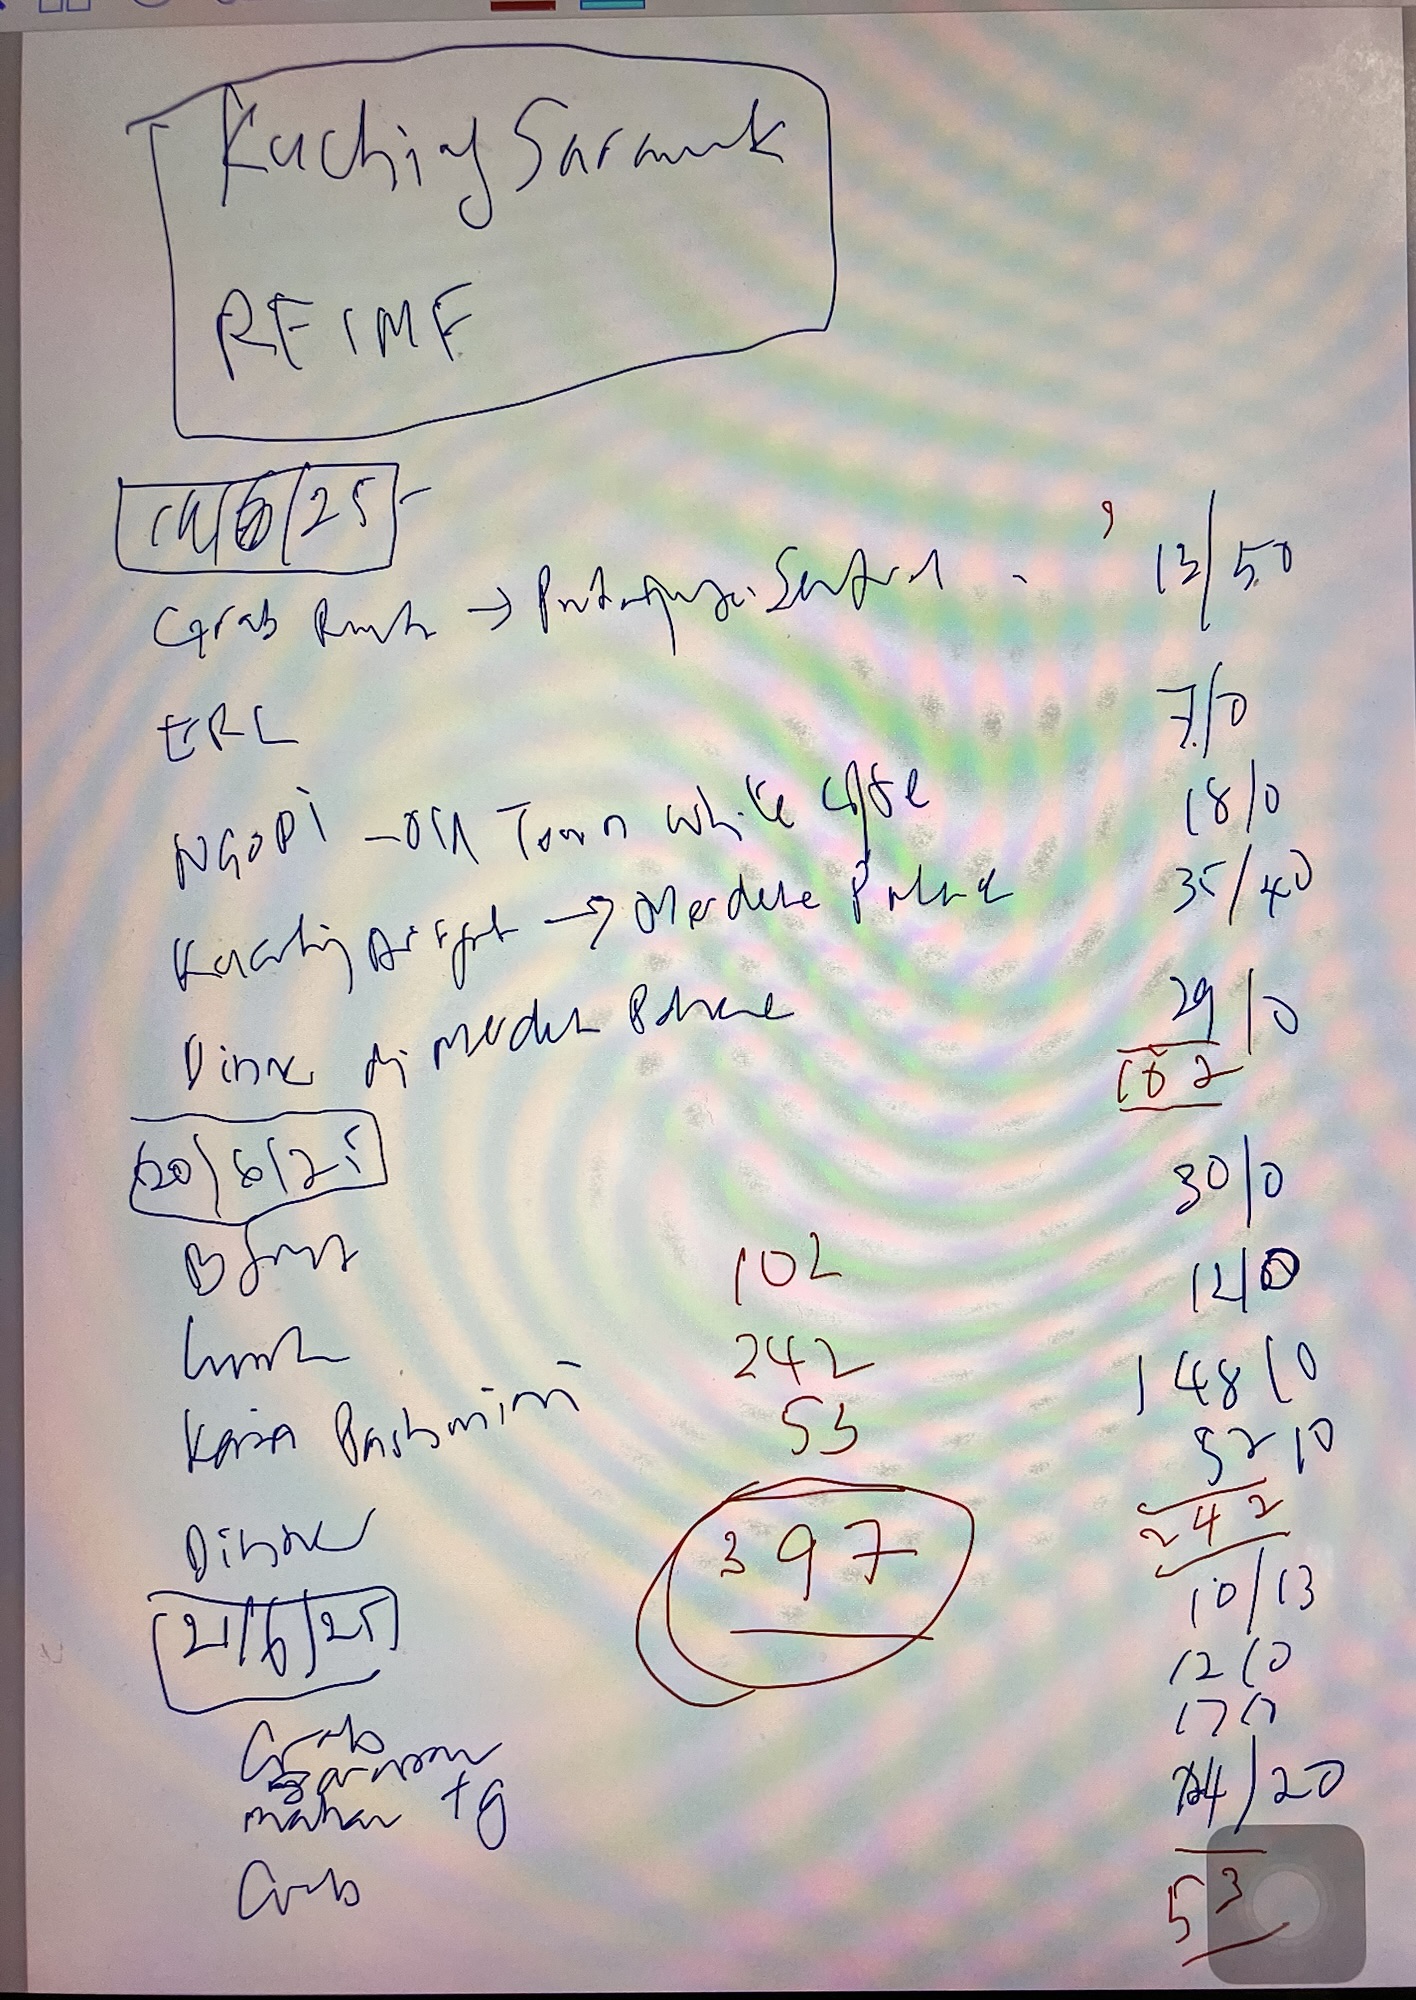 Kuching Sarawak
REIMF
19/6/25
Grab Rumh → Putrajaya Sentral 13/50
ERL 7/0
NGOPI - Old Town White Coffee 18/0
Kuching Airport → Merdeka Palace 35/40
Dinner di Merdeka Palace 29/0
102
20/6/25
30/0
Bfast 102 12/0
Lunch 242 148/0
Kain Pashmini 53 52/0
Dinner 397 242
21/6/25 10/13
12/0
17/0
Grab
makan tg 14/20
Grab 53